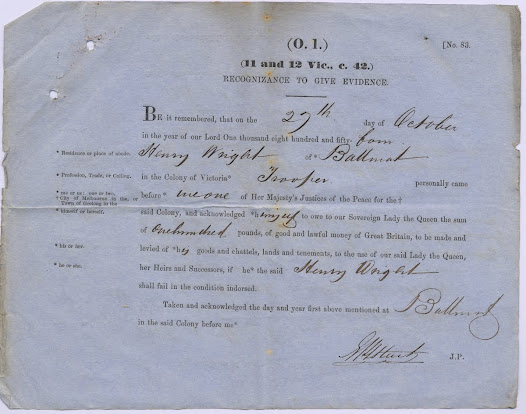 (O. 1.)
[No. 83.
(11 and 12 Vic., c. 42.)
RECOGNIZANCE TO GIVE EVIDENCE.
BE it remembered, that on the 27th day of October
in the year of our Lord One thousand eight hundred and fifty-four
* Residence or place of abode.
Henry Wright of* Ballarat
* Profession, Trade, or Calling.
in the Colony of Victoria* Trooper personally came
* me or us: one or two.
before* me one of Her Majesty's Justices of the Peace for the†
* City of Melbourne in the, or Town of Geelong in the
* himself or herself.
said Colony, and acknowledged *himself to owe to our Sovereign Lady the Queen the sum
of One hundred pounds, of good and lawful money of Great Britain, to be made and
* his or her.
levied of *his goods and chattels, lands and tenements, to the use of our said Lady the Queen,
* he or she.
her Heirs and Successors, if he* the said Henry Wright
shall fail in the condition indorsed.
Taken and acknowledged the day and year first above mentioned at Ballarat
in the said Colony before me*
J.P.